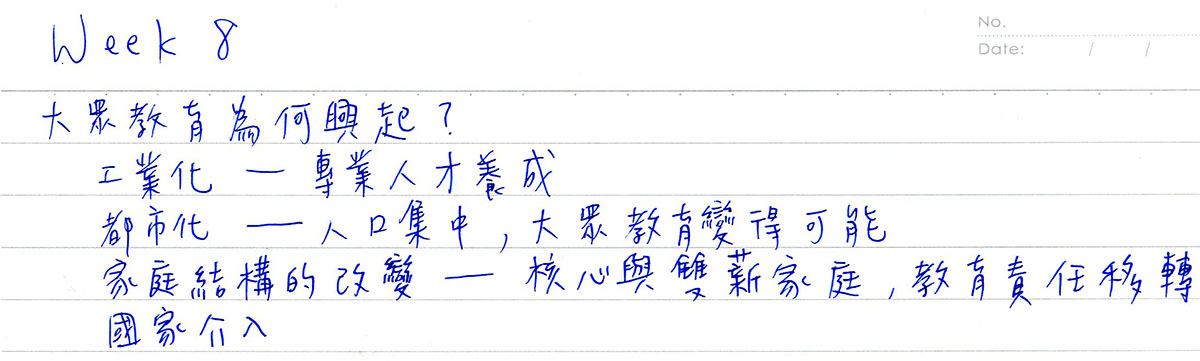 Week 8
No.
Date: / /
大眾教育為何興起?
工業化 — 專業人才養成
都市化 — 人口集中,大眾教育變得可能
家庭結構的改變 — 核心與雙薪家庭,教育責任移轉
國家介入